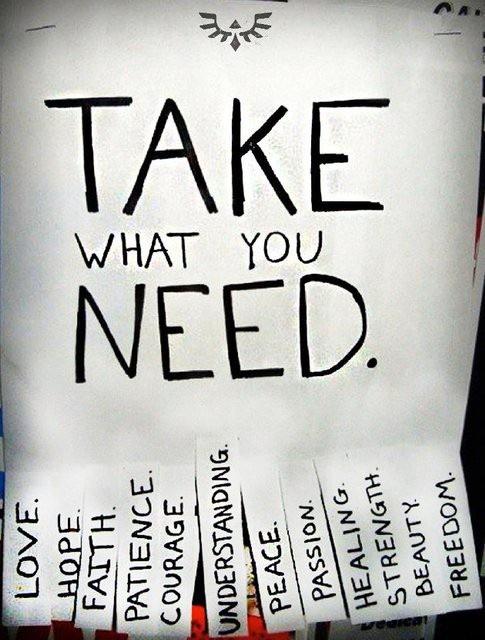 TAKE
WHAT YOU
NEED.
LOVE.
HOPE.
FAITH.
PATIENCE.
COURAGE.
UNDERSTANDING.
PEACE.
PASSION.
HEALING.
STRENGTH.
BEAUTY.
FREEDOM.